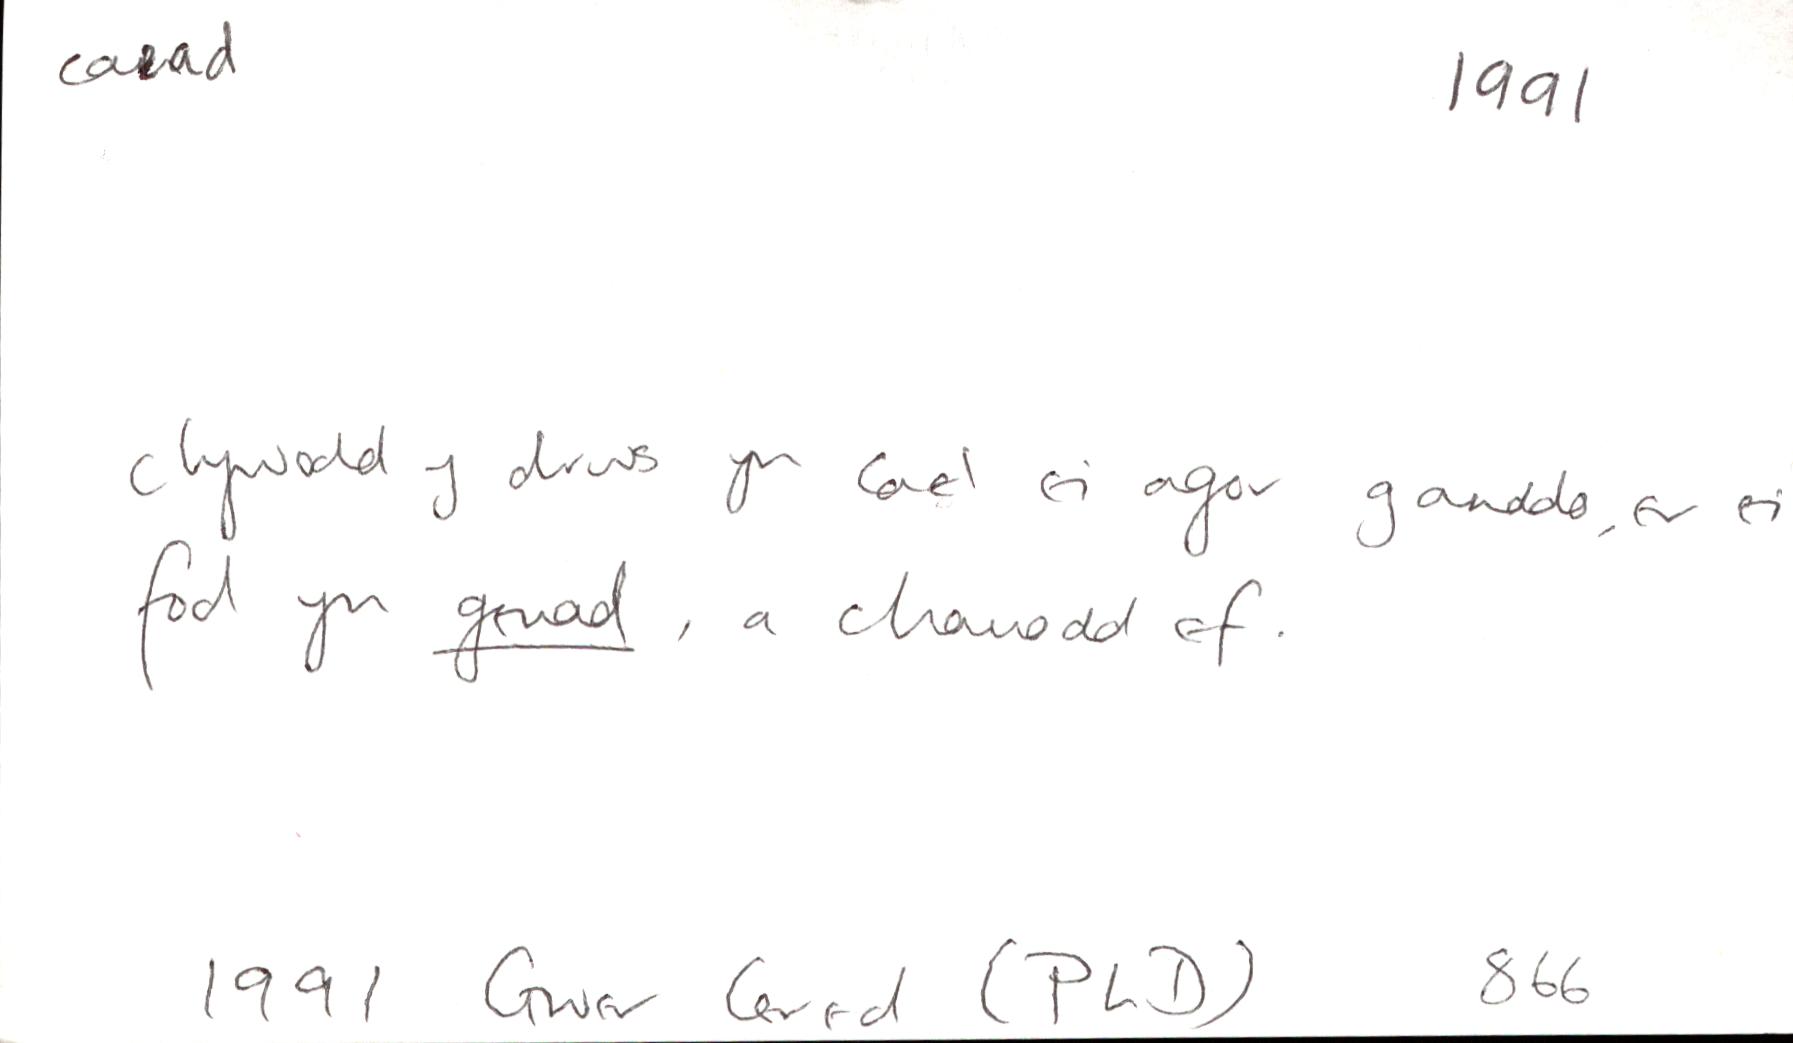 caead
1991
clywodd y drws yn cael ei agor ganddo, er ei
fod yn, a chauodd ef.
1991 Gwer Cered (PLD) 866